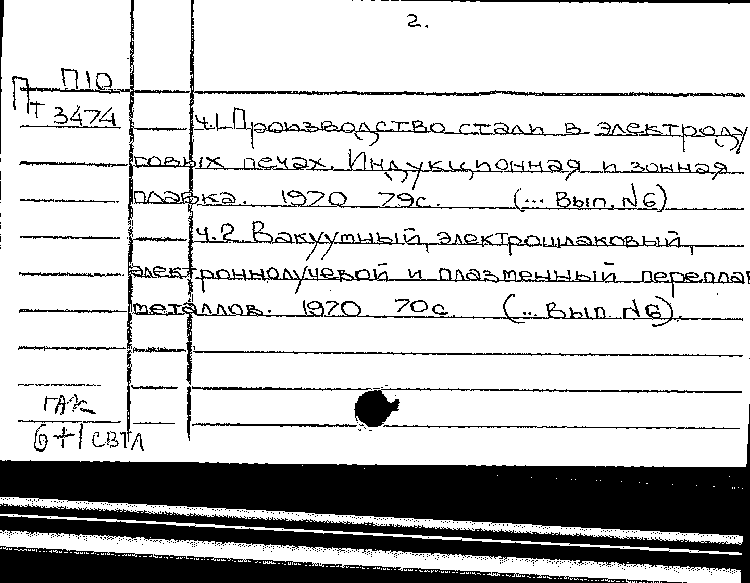 2.
П10
Пт 3474
ч.1. Производство стали в электроду
говых печах. Индукционная и зонная
плавка. 1970 79с. (... Вып. №6)
ч.2 Вакуумный, электрошлаковый,
электроннолучевой и плазменный переплав
металлов. 1970 70с. (... Вып. №6).
ГАК
6+1 СВТЛ